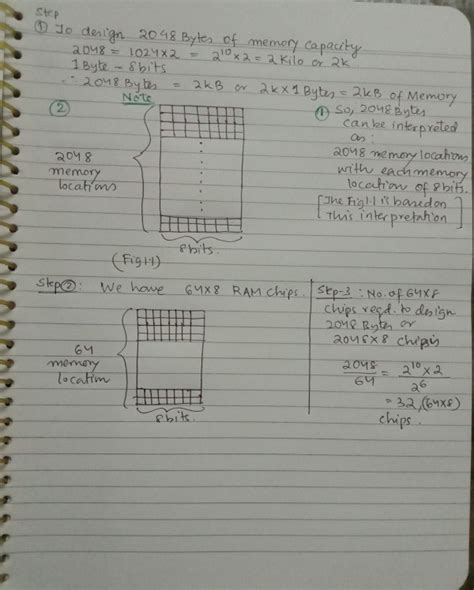 Step
① To design 2048 Bytes of memory capacity
2048 = 1024×2 = 2¹⁰×2 = 2 Kilo or 2k
1 Byte – 8bits
∴ 2048 Bytes = 2kB or 2k×1 Bytes = 2kB of Memory
Note
②
2048
memory
locations
8bits.
(Fig 1.1)
① So, 2048 Bytes
can be interpreted
as:
2048 memory locations
with each memory
location of 8bits.
[The Fig 1.1 is based on
This interpretation]
Step②: We have 64×8 RAM chips.
64
memory
location
8bits.
Step-3: No. of 64×8
chips reqd. to design
2048 Bytes or
2048×8 chip is
2048/64 = 2¹⁰×2/2⁶
= 32, (64×8)
chips.